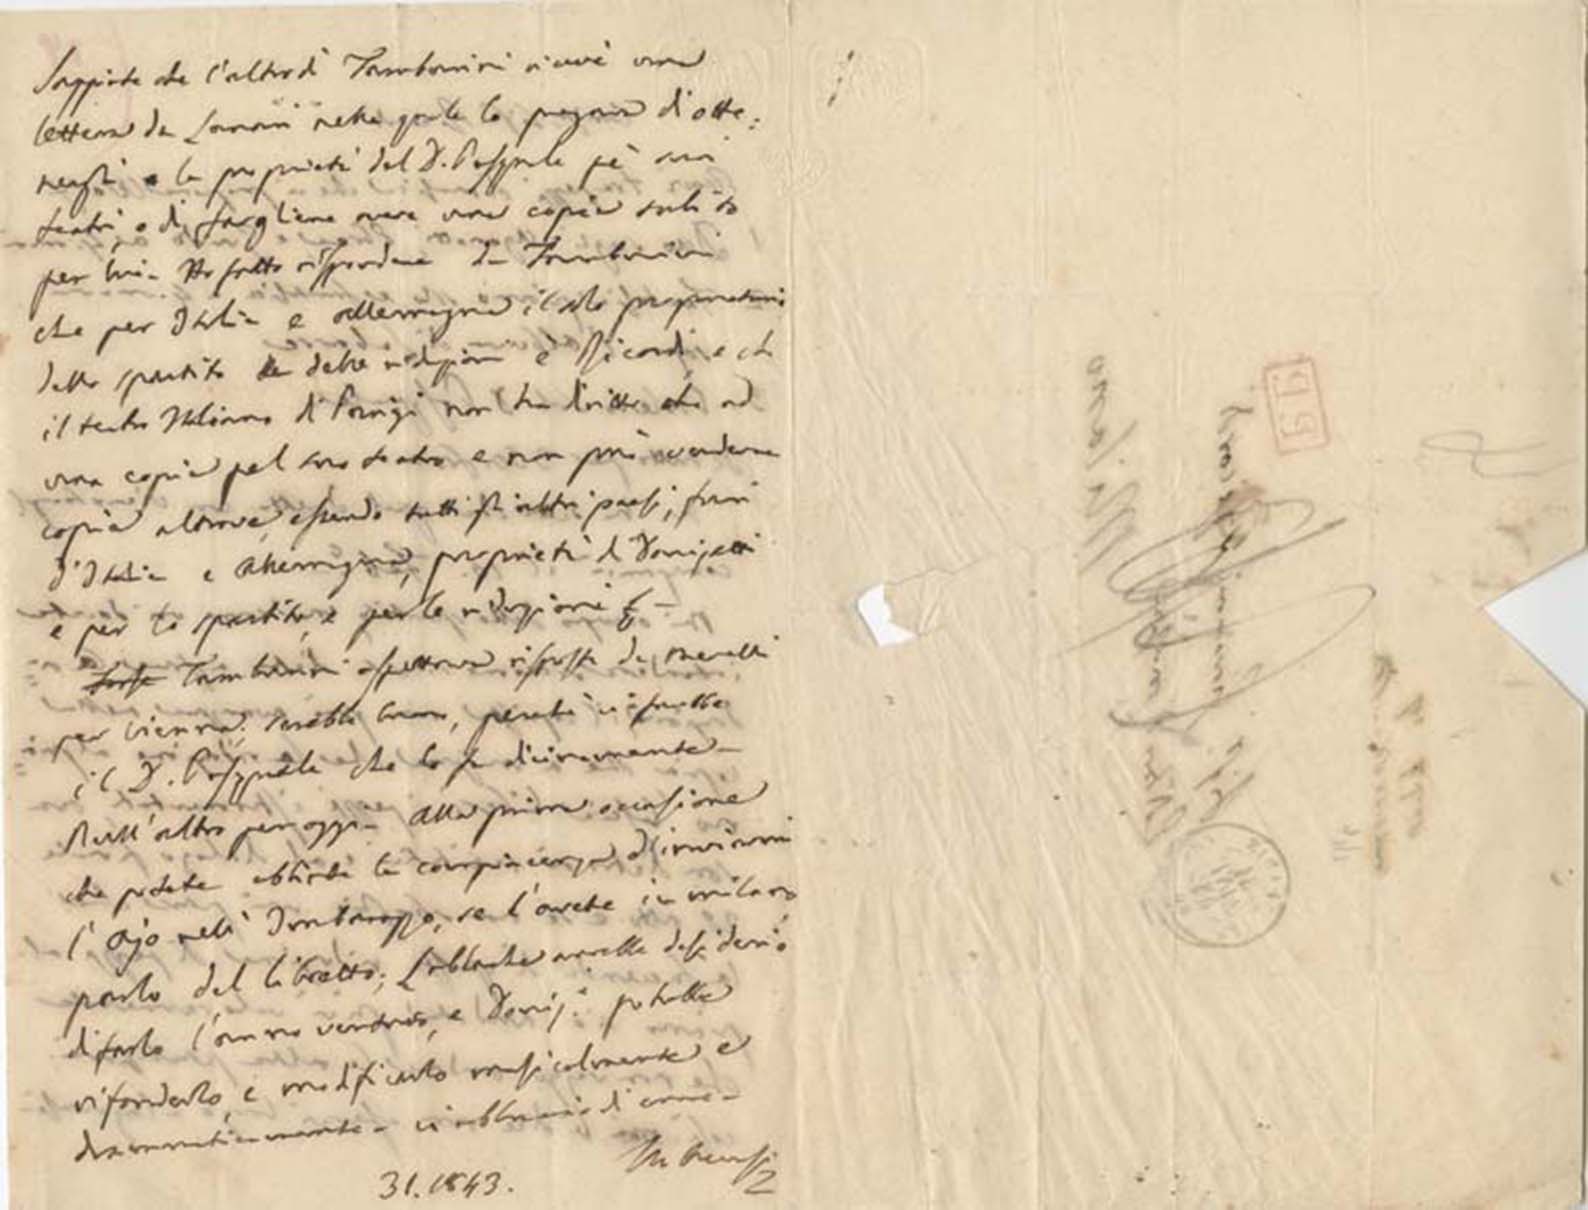 Sappiate che l'altrodì Tamburini ricevè una
lettera da Lanari nella quale lo pregava di otte:
nergli o la proprietà del D. Pasquale pe' suoi
teatri, o di fargliene avere una copia subito
per lui - Ho fatto rispondere da Tamburini
che per Italia e Allemagna il solo proprietario
dello spartito e delle riduzioni è Ricordi, e che
il teatro Italiano di Parigi non ha dritto che ad
una copia pel suo teatro e non può vendere
copia altrove, essendo tutti gli altri paesi, fuori
d'Italia e Allemagna, proprietà di Donizetti
e per lo spartito, e per le riduzioni &c -
Forse Tamburini aspettava risposta da Merelli
per Vienna; sarebbe buono, perché vi farebbe
il D. Pasquale che lo fa divinamente -
Null'altro per oggi - Alla prima occasione
che potete abbiate la compiacenza d'inviarmi
l'Ajo nell'Imbarazzo, se l'avete in Milano,
parlo del libretto; Lablache avrebbe desiderio
di farlo l'anno venturo, e Doniz: potrebbe
rifonderlo, e modificarlo musicalmente e
drammaticamente - vi abbraccio di cuore -
31. 1843.
Milano
Ricordi